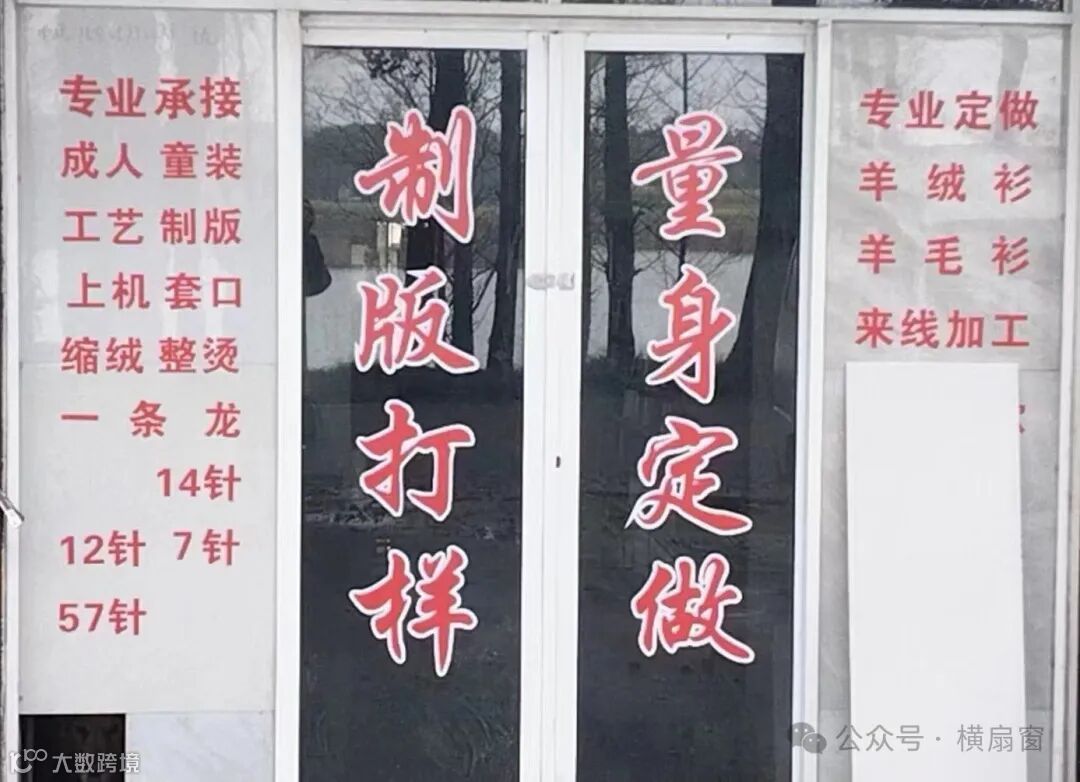 专业承接
成人 童装
工艺 制版
上机 套口
缩绒 整烫
一条龙
14针
12针 7针
57针
制版打样
量身定做
专业定做
羊绒衫
羊毛衫
来线加工
公众号·横扇窗
大数跨境